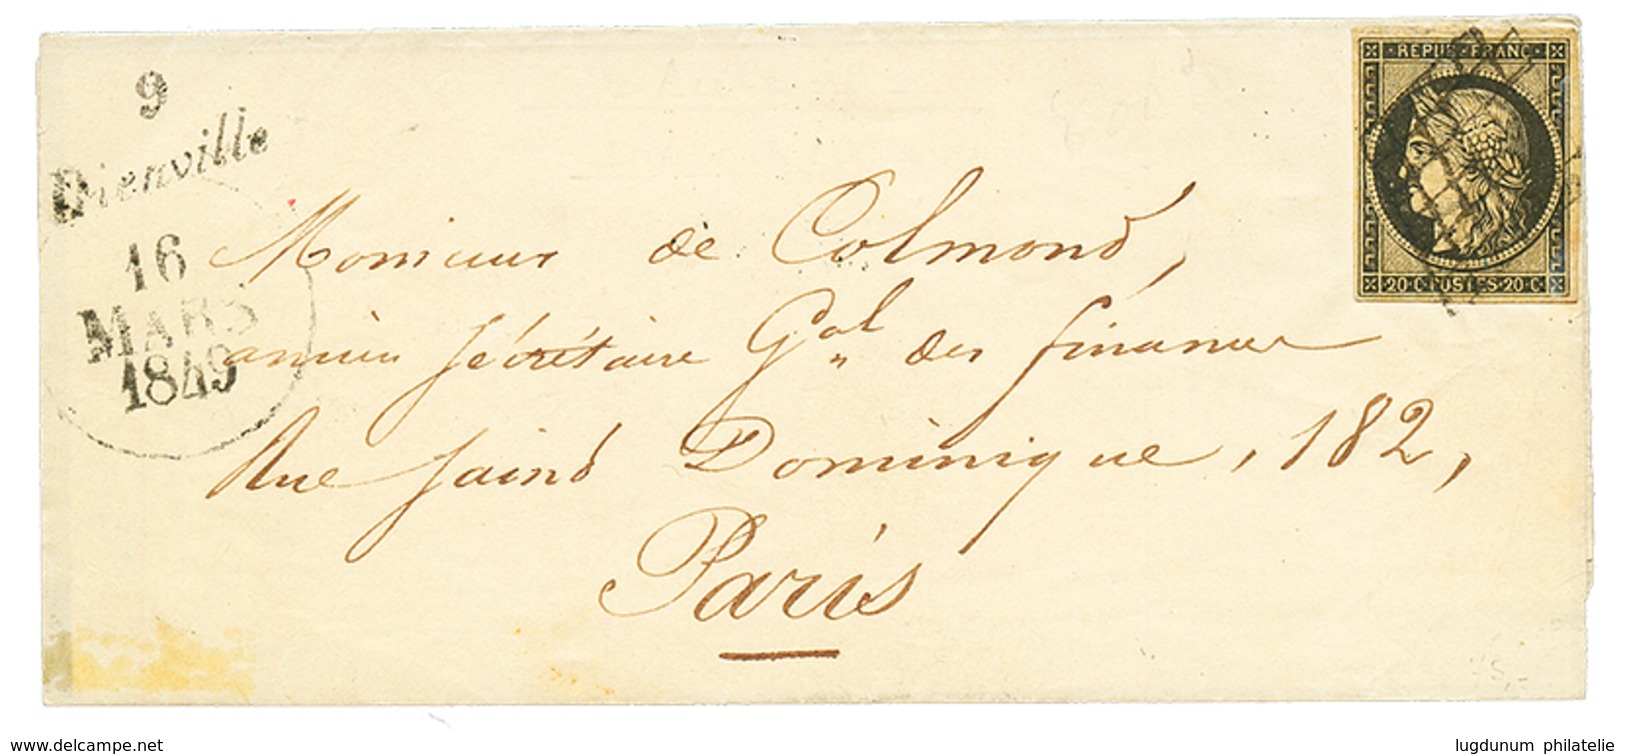 9
Dienville
16
MARS
1849
REPUB·FRANC·
20·C·POSTES·20·C·
Monsieur de Colmond,
ancien secrétaire Gal des finances
Rue Saind Dominique, 182,
Paris
www.delcampe.net
lugdunum philatelie